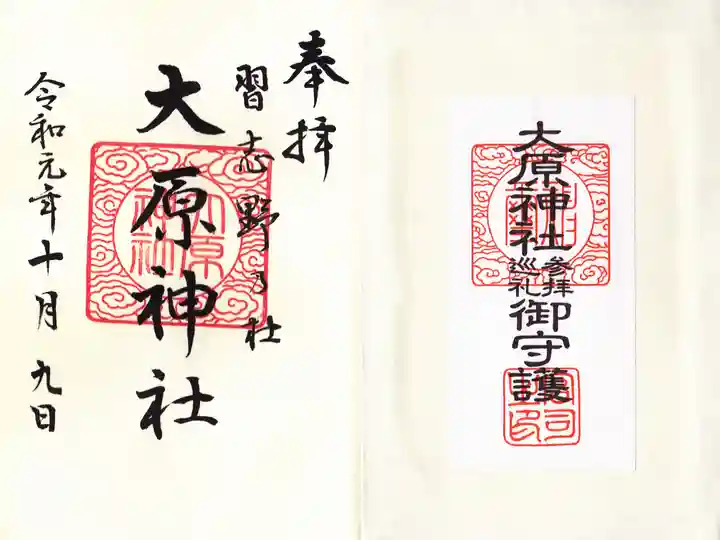 奉拝
習志野乃杜
大原神社
令和元年十月九日
大原神社
参拝
巡礼
御守護
大原
神社
宮司
之印